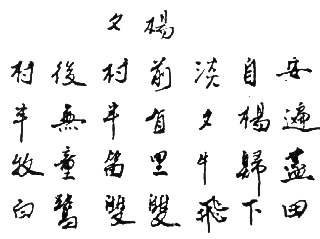 夕楊
村後村前淡自安
半無半有夕楊遍
牧童笛里牛歸盡
白鷺雙雙飛下田